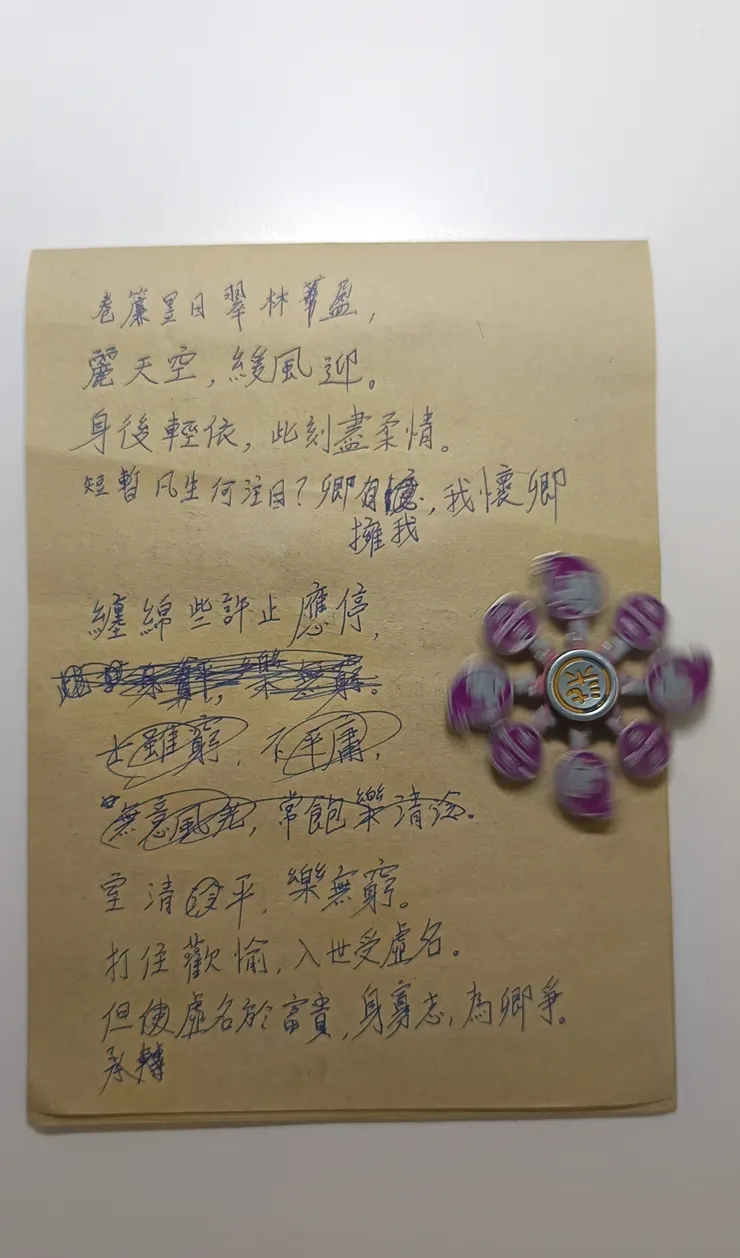 卷簾昱日翠林華盈，
麗天空，緩風迎。
身後輕依，此刻盡柔情。
短暫凡生何注目？卿有，我懷卿
擁我
纏綿些許止應停，
身貧平，樂無窮。
士雖窮，不平庸，
無意風光，常飽樂清
室清平，樂無窮。
打住歡愉，入世受虛名。
但使虛名於富貴，身寡志，為卿爭。
承轉